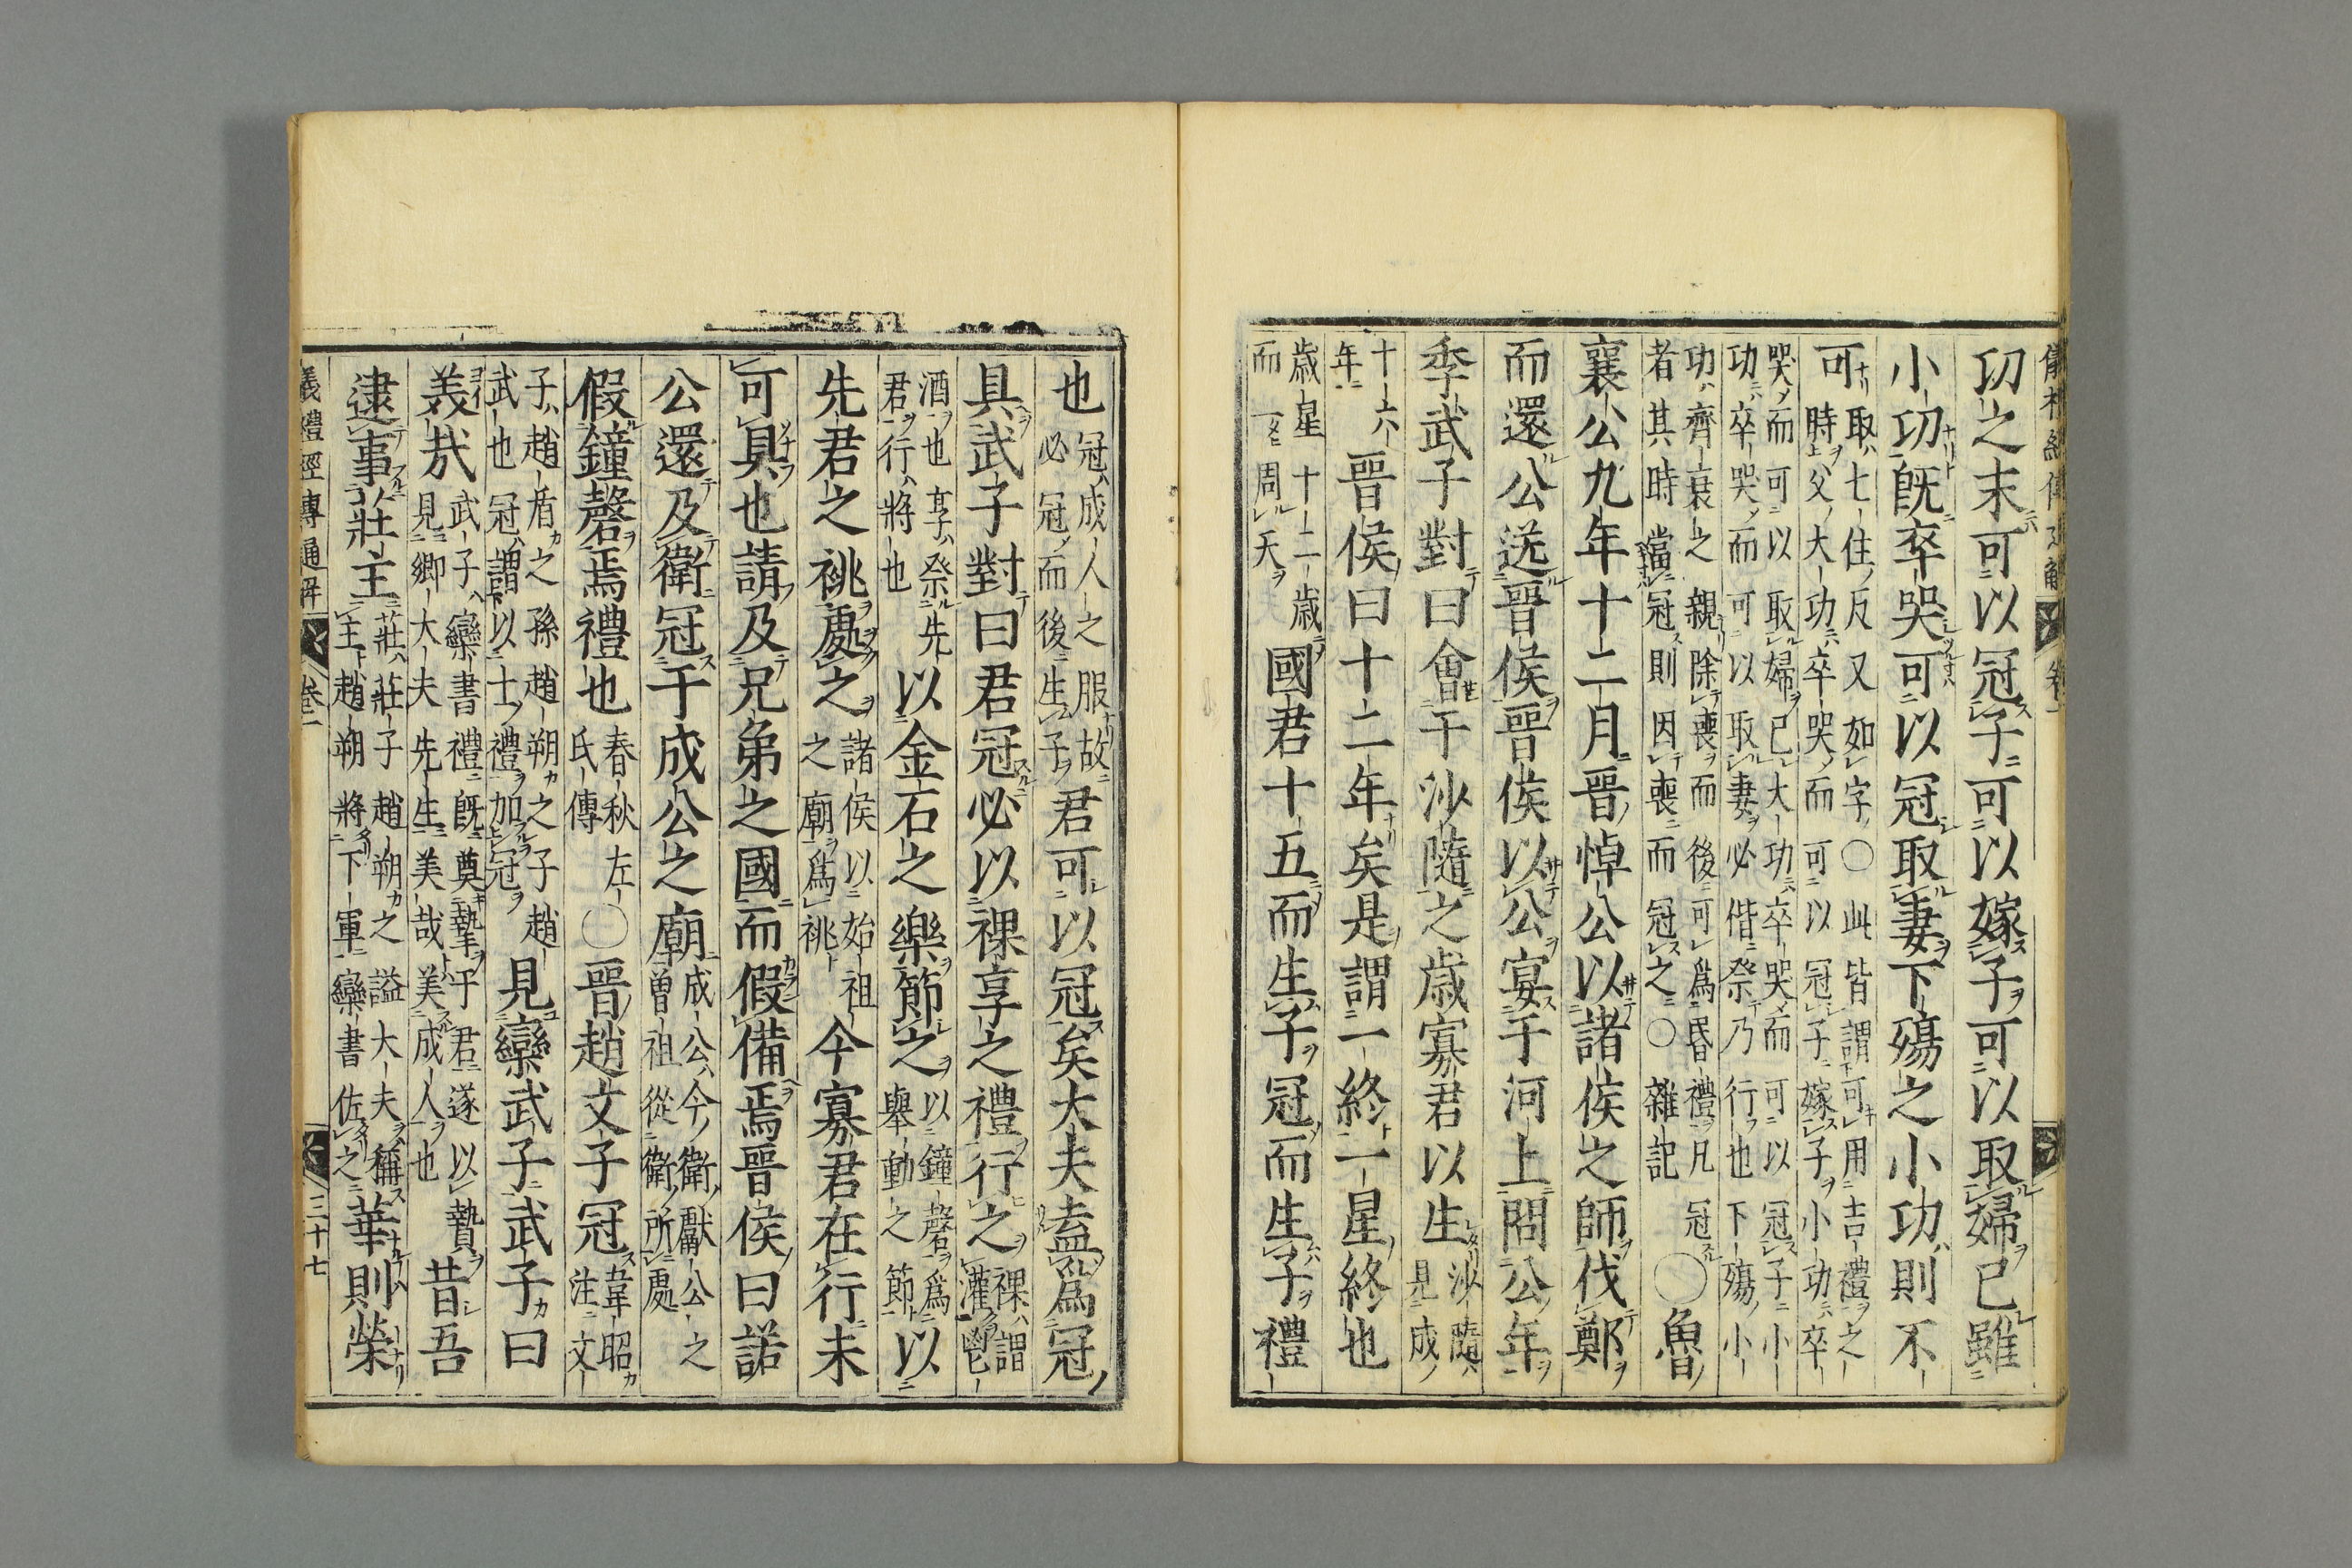 功之末可以冠子可以嫁子可以取婦已雖
小功既卒哭可以冠取妻下殤之小功則不
可取七住反又如字〇此皆謂可用吉禮之時父大功卒哭而可以冠子嫁子小功卒
哭而可以取婦已大功卒哭而可以冠子小功卒哭而可以取妻必偕祭乃行也下殤小
功齊衰之親除喪而後可爲昏禮凡冠者其時當冠則因喪而冠之〇雜記〇魯
襄公九年十二月晉悼公以諸侯之師伐鄭
而還公送晉侯晉侯以公宴于河上問公年
季武子對曰會于沙隨之歲寡君以生沙隨見成
十六年晉侯曰十二年矣是謂一終一星終也
歲星十二歲而一終周天國君十五而生子冠而生子禮
也冠成人之服故必冠而後生子君可以冠矣大夫盍爲冠
具武子對曰君冠必以祼享之禮行之祼謂灌鬯
酒也享祭先君行將也以金石之樂節之以鐘磬爲舉動之節以
先君之祧處之諸侯以始祖之廟爲祧今寡君在行未
可具也請及兄弟之國而假備焉晉侯曰諾
公還及衛冠于成公之廟成公今衛獻公之曾祖從衛所處
假鐘磬焉禮也春秋左氏傳〇晉趙文子冠韋昭注文
子趙盾之孫趙朔之子趙武也冠謂以士禮加冠見欒武子武子曰
美哉武子欒書禮既奠摯于君遂以贄見卿大夫先生美哉美成人也昔吾
逮事莊主莊莊子趙朔之謚大夫稱主趙朔將下軍欒書佐之華則榮
儀禮經傳通解 卷一 三十七